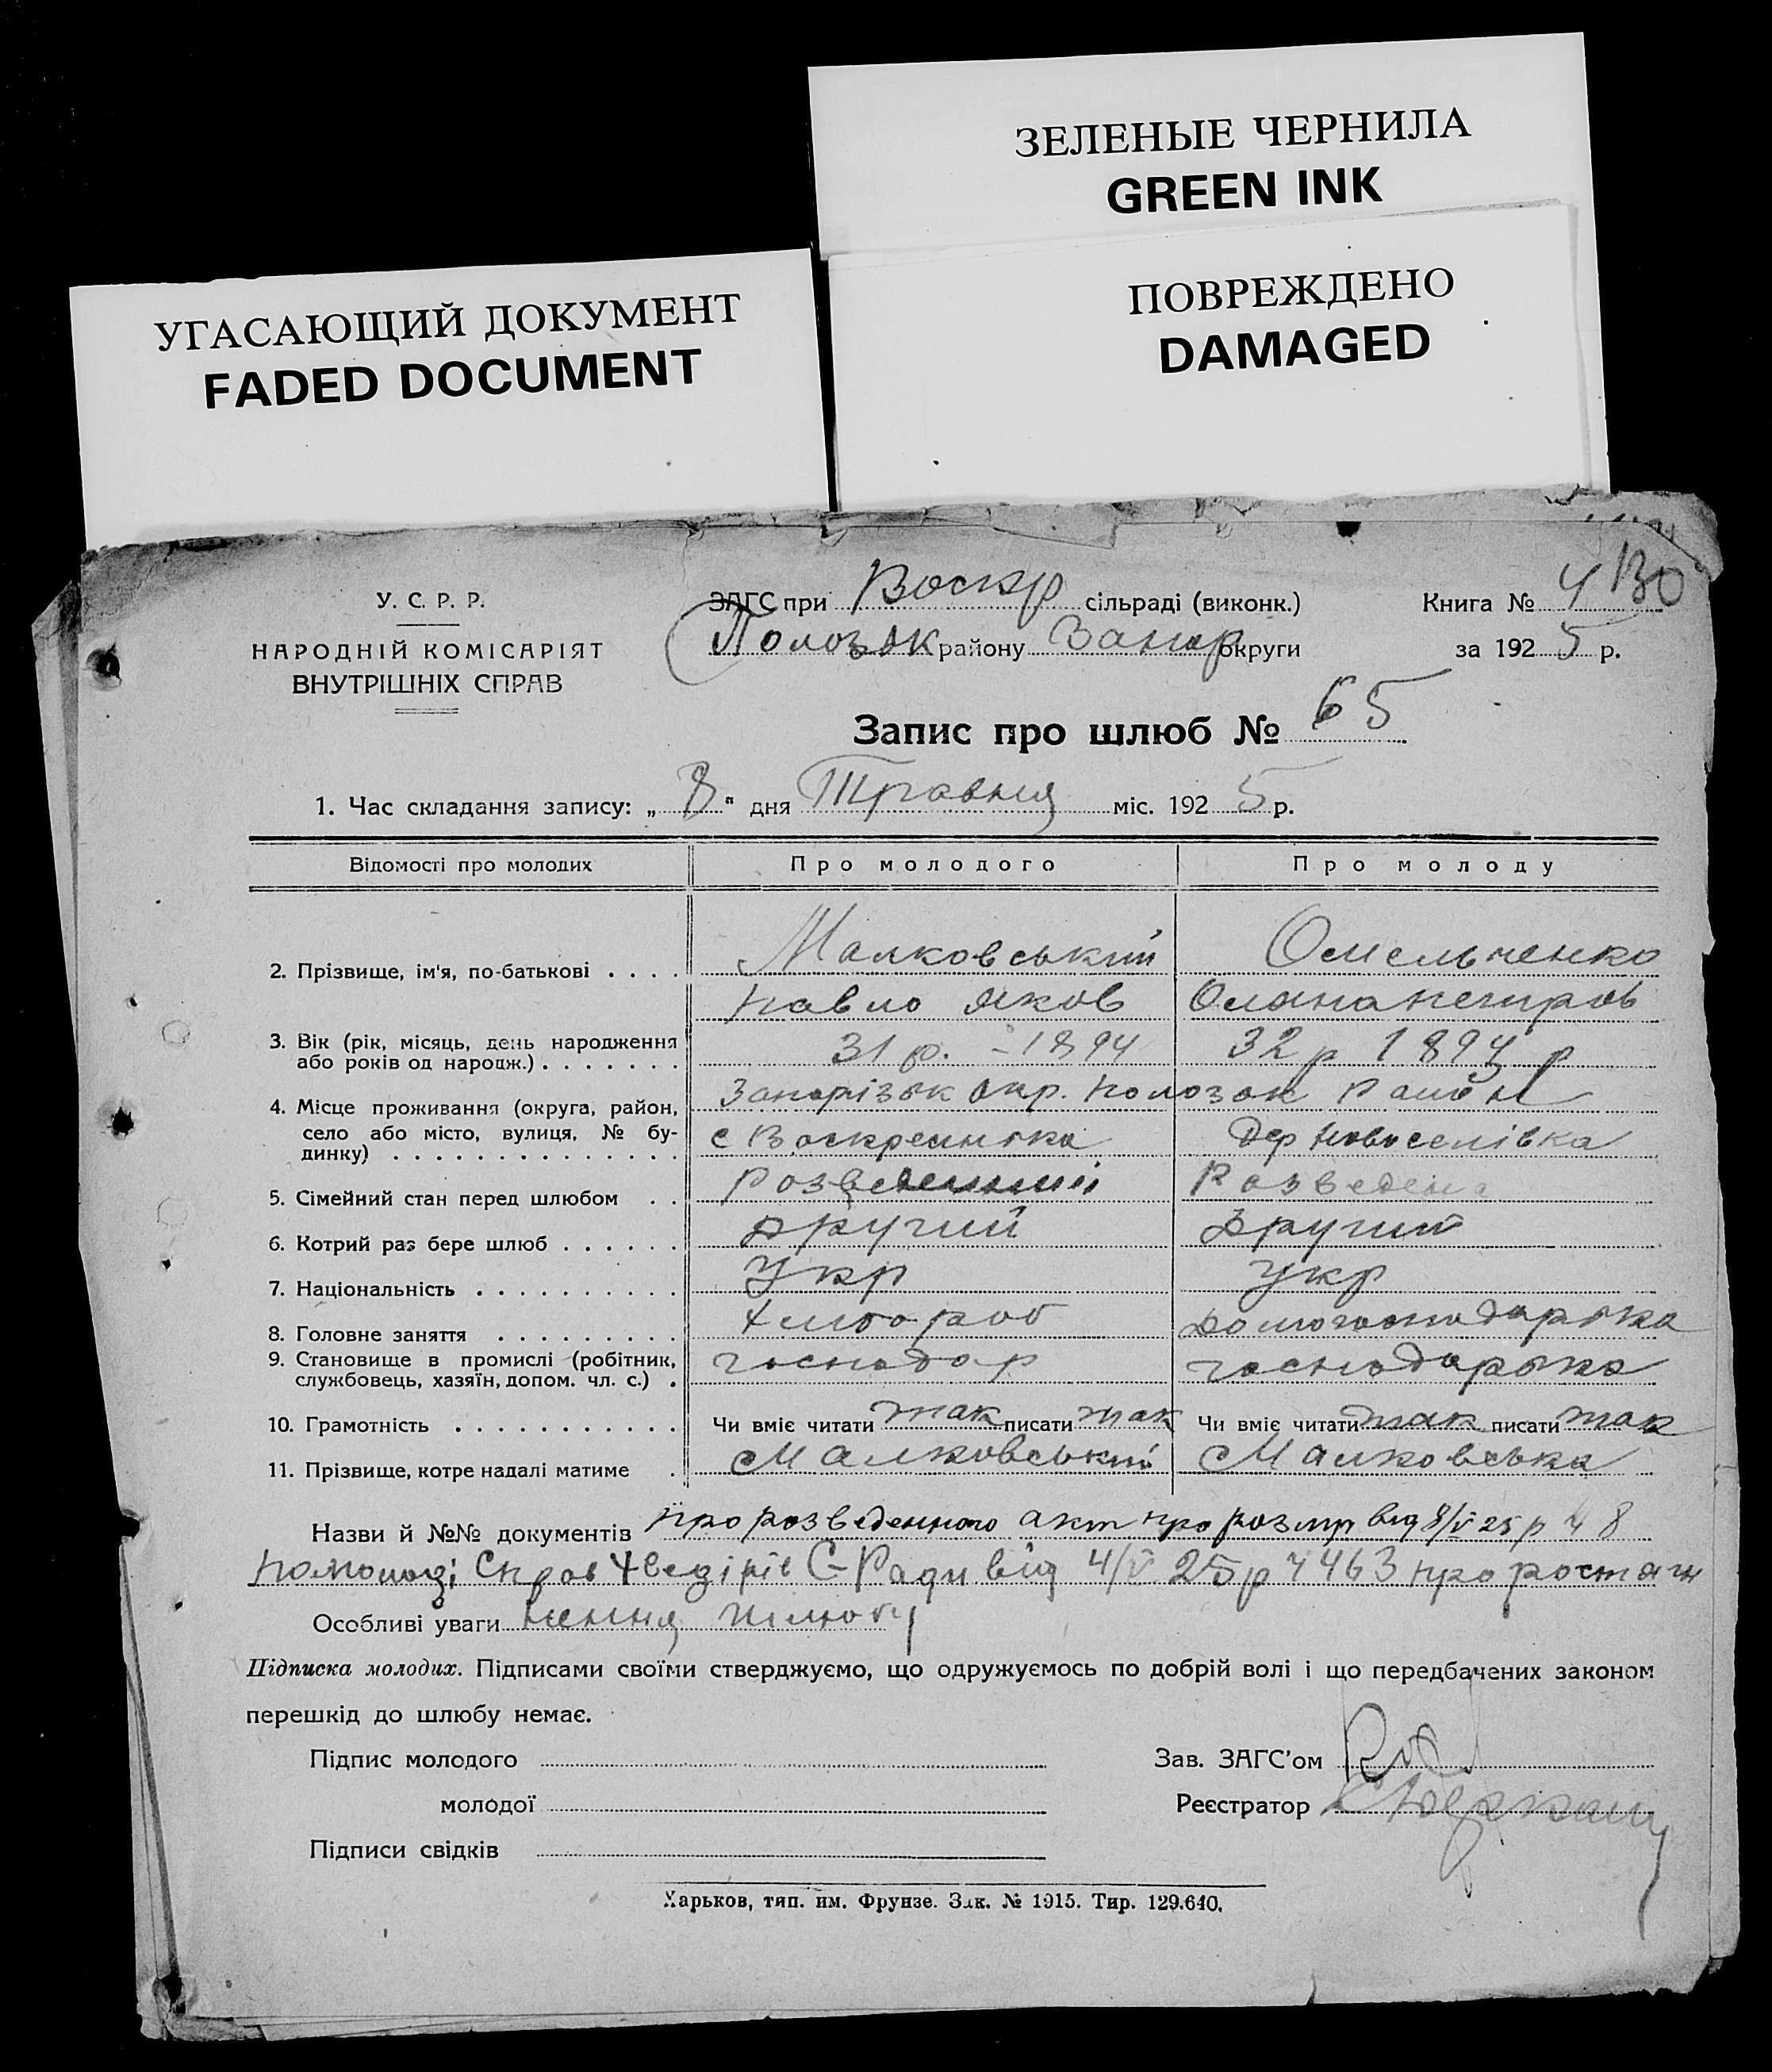 ЗЕЛЕНЫЕ ЧЕРНИЛА
GREEN INK
УГАСАЮЩИЙ ДОКУМЕНТ
FADED DOCUMENT
ПОВРЕЖДЕНО
DAMAGED
130
У. С. Р. Р.
НАРОДНІЙ КОМІСАРІЯТ
ВНУТРІШНІХ СПРАВ
ЗАГС при Воскр сільраді (виконк.) Книга № 4
Полозьк району Запор округи за 1925 р.
Запис про шлюб № 65
1. Час складання запису: „8" дня Травня міс. 1925 р.
Відомості про молодих Про молодого Про молоду
2. Прізвище, ім'я, по-батькові . . . . Малковський Омельченко
Павло Яков Оляна Петров
3. Вік (рік, місяць, день народження або років од народж.) . . . . . . . 31 р. - 1894 32 р 1894 р
4. Місце проживання (округа, район, село або місто, вулиця, № будинку) . . . . . . . . . . . . . . Запорізьк окр. Полозьк район
с Воскресенька Дер Новоселівка
5. Сімейний стан перед шлюбом . . Розведений Розведена
6. Котрий раз бере шлюб . . . . . . Другий Другий
7. Національність . . . . . . . . . . Укр Укр
8. Головне заняття . . . . . . . . . Хлібороб Домогосподарька
9. Становище в промислі (робітник, службовець, хазяїн, допом. чл. с.) . господар господарька
10. Грамотність . . . . . . . . . . . Чи вміє читати так писати так Чи вміє читати так писати так
11. Прізвище, котре надалі матиме . Малковський Малковська
Назви й №№ документів про розведенного акт про розлуч від 8/V 25 р ч 8
С-Ради від 4/V 25 р ч 463 про розтяг
Особливі уваги нення шлюбу
Підписка молодих. Підписами своїми стверджуємо, що одружуємось по добрій волі і що передбачених законом
перешкід до шлюбу немає.
Підпис молодого Зав. ЗАГС'ом
молодої Реєстратор
Підписи свідків
Харьков, тип. им. Фрунзе. Зак. № 1915. Тир. 129.640.